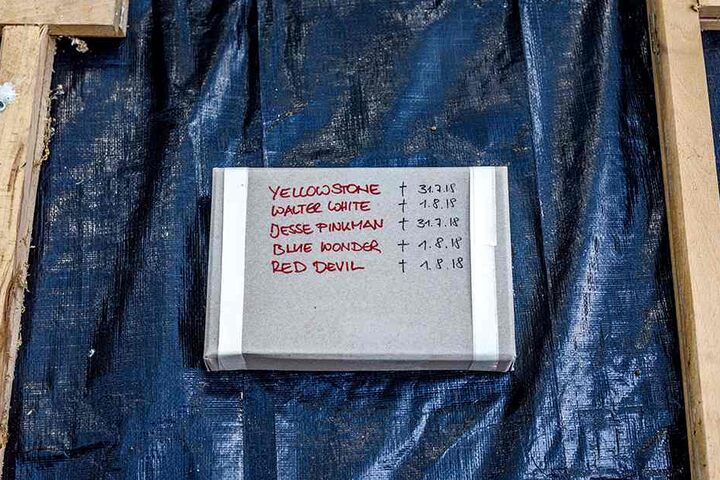 YELLOWSTONE † 31.7.18
WALTER WHITE † 1.8.18
JESSE PINKMAN † 31.7.18
BLUE WONDER † 1.8.18
RED DEVIL † 1.8.18